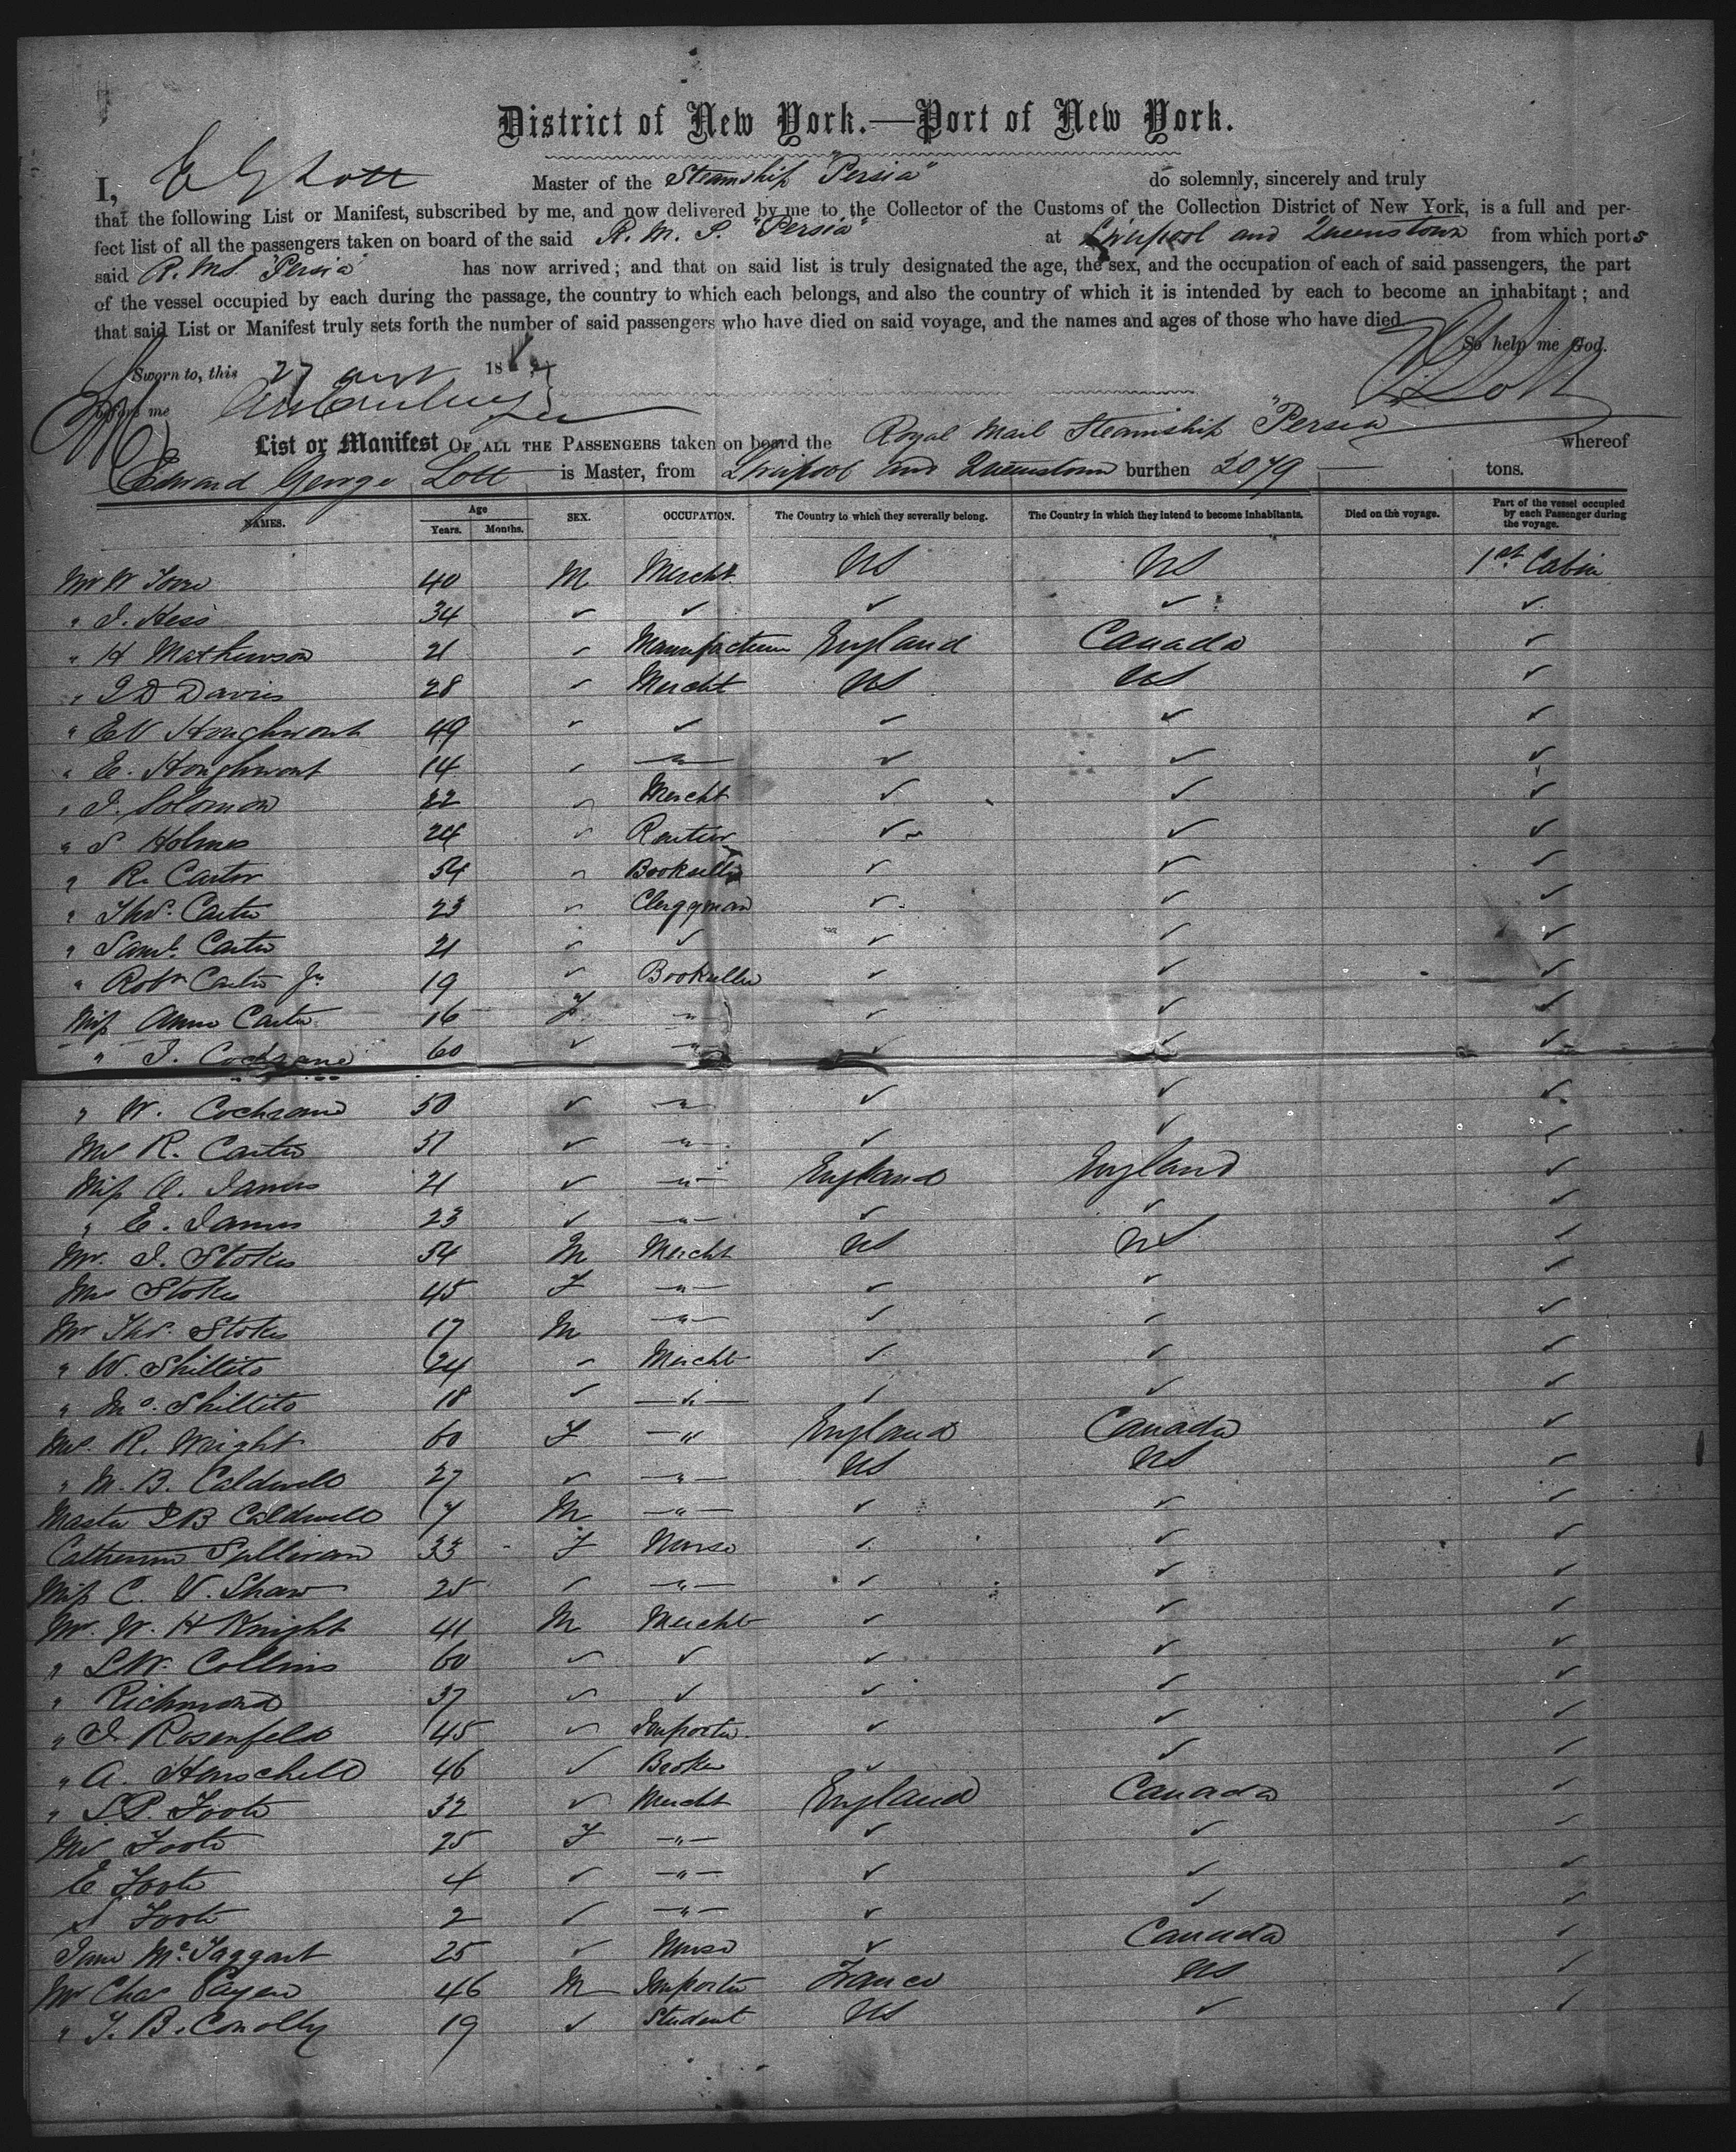 District of New York.—Port of New York.
I, E G Lott Master of the Steamship "Persia" do solemnly, sincerely and truly
that the following List or Manifest, subscribed by me, and now delivered by me to the Collector of the Customs of the Collection District of New York, is a full and per-
fect list of all the passengers taken on board of the said R. M. S. "Persia" at Liverpool and Queenstown from which ports
said R. M. S. "Persia" has now arrived; and that on said list is truly designated the age, the sex, and the occupation of each of said passengers, the part
of the vessel occupied by each during the passage, the country to which each belongs, and also the country of which it is intended by each to become an inhabitant; and
that said List or Manifest truly sets forth the number of said passengers who have died on said voyage, and the names and ages of those who have died
So help me God.
Sworn to, this 27 186
before me E G Lott
List or Manifest OF ALL THE PASSENGERS taken on board the Royal Mail Steamship "Persia" whereof
Edward George Lott is Master, from Liverpool and Queenstown burthen 2079 tons.
NAMES. Age Years. Months. SEX. OCCUPATION. The Country to which they severally belong. The Country in which they intend to become inhabitants. Died on the voyage. Part of the vessel occupied by each Passenger during the voyage.
Mr W 40 M Mercht. US US 1st Cabin
" I. Hess 34 ✓ ✓ ✓ ✓ ✓
" H Mathewson 21 ✓ Manufacturer England Canada ✓
" I D Davis 28 ✓ Mercht US US ✓
" E V Houghwout 49 ✓ ✓ ✓ ✓ ✓
" E. Houghwout 14 ✓ —"— ✓ ✓ ✓
" I. Solomon 22 ✓ Mercht ✓ ✓ ✓
" S Holmes 24 ✓ ✓ ✓ ✓
" R. Carter 54 ✓ Bookseller ✓ ✓ ✓
" Thos. Carter 23 ✓ Clergyman ✓ ✓ ✓
" Saml. Carter 21 ✓ ✓ ✓ ✓ ✓
" Robt Carter Jr 19 ✓ Bookseller ✓ ✓ ✓
Miss Anne Carter 16 F " ✓ ✓ ✓
" I. Cochrane 60 ✓ —"— ✓ ✓ ✓
" W. Cochrane 50 ✓ —"— ✓ ✓ ✓
Mrs R. Carter 51 ✓ —"— ✓ ✓ ✓
Miss A. James 21 ✓ —"— England England ✓
" E. James 23 ✓ —"— ✓ ✓ ✓
Mr. I. Stokes 54 M Mercht US US ✓
Mrs Stokes 45 F —"— ✓ ✓ ✓
Mr Thos. Stokes 17 M —"— ✓ ✓ ✓
" W. Shillito 24 ✓ Mercht ✓ ✓ ✓
" Jno. Shillito 18 ✓ —"— ✓ ✓ ✓
Mrs. R. Wright 60 F —" England Canada ✓
" M. B. Caldwell 27 ✓ —"— US US ✓
Master I B Caldwell 7 M —"— ✓ ✓ ✓
Catherine Sullivan 33 F Nurse ✓ ✓ ✓
Miss C. V. Shaw 25 ✓ —"— ✓ ✓ ✓
Mr. W. H Knight 41 M Mercht ✓ ✓ ✓
" S W. Collins 60 ✓ ✓ ✓ ✓ ✓
" Richmond 37 ✓ ✓ ✓ ✓ ✓
" I. Rosenfeld 45 ✓ Importer ✓ ✓ ✓
" A. Henscheld 46 ✓ Broker ✓ ✓ ✓
" S. P. Foote 32 ✓ Mercht England Canada ✓
Mrs Foote 25 F —"— ✓ ✓ ✓
E Foote 4 ✓ —"— ✓ ✓ ✓
S Foote 2 ✓ —"— ✓ ✓ ✓
Jane McTaggart 25 ✓ Nurse ✓ Canada ✓
Mr Chas Payen 46 M Importer France US ✓
" T. B. Conolly 19 ✓ Student US ✓ ✓